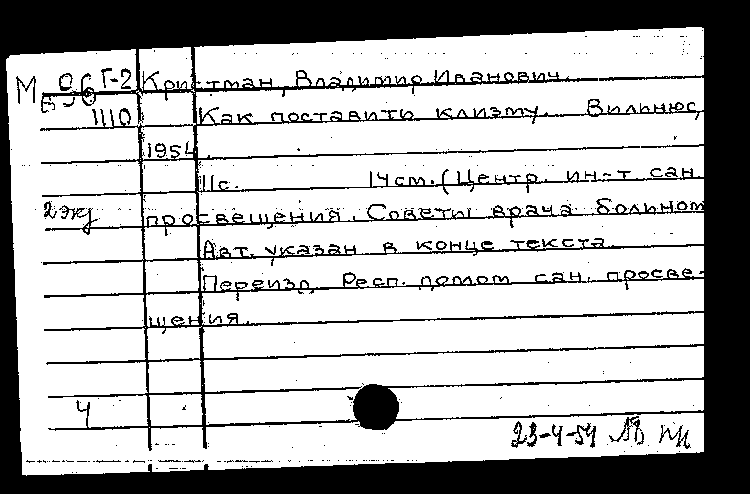 М Г-2 Кристман, Владимир Иванович.
1110 Как поставить клизму. Вильнюс,
1954.
11с. 14см. (Центр. ин-т сан.
2 экз просвещения. Советы врача больном
Авт. указан в конце текста.
Переизд. Респ. домом сан. просве-
щения.
4
23-4-54